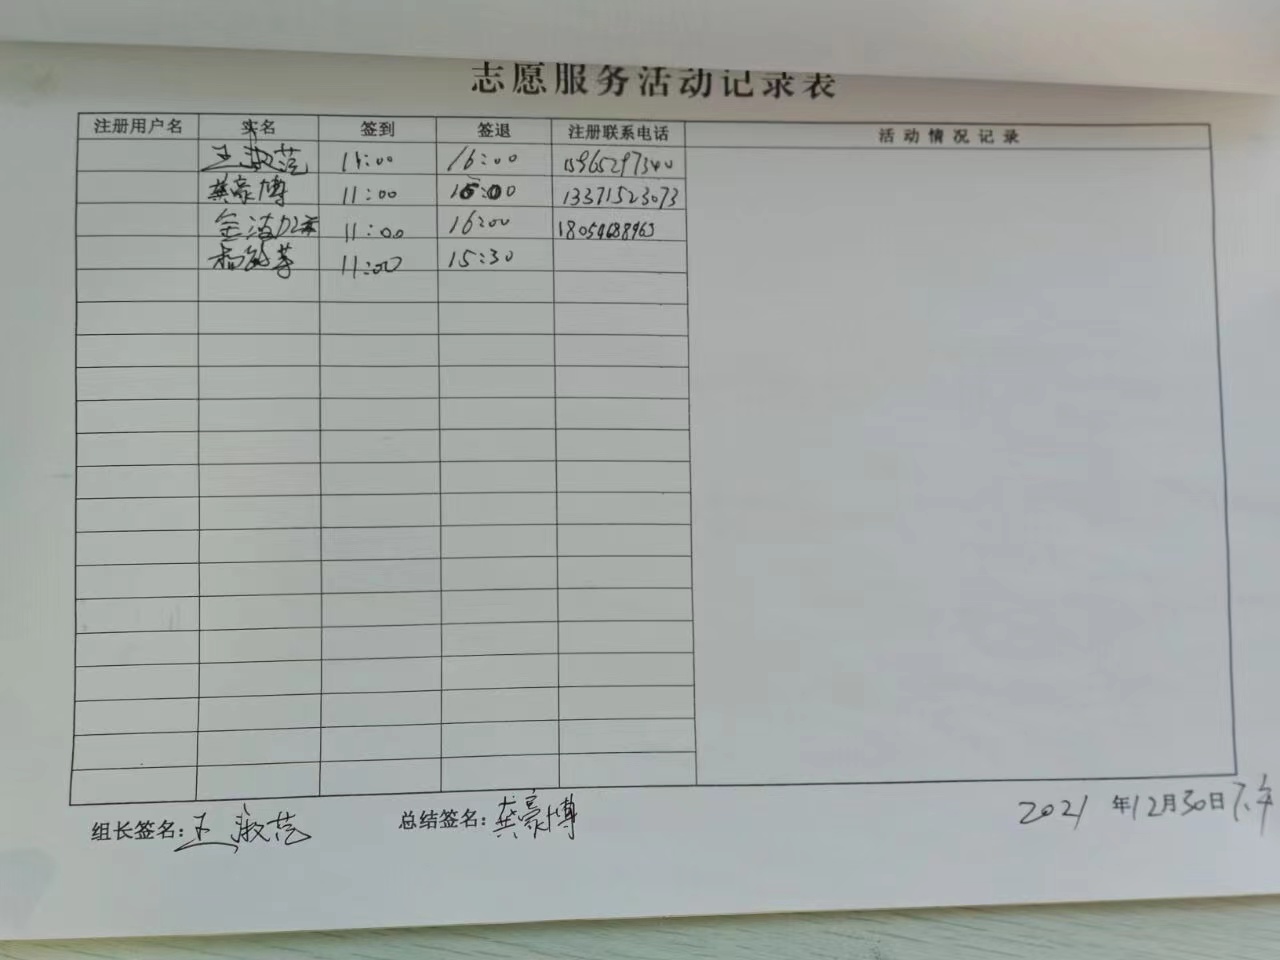 志愿服务活动记录表
注册用户名 实名 签到 签退 注册联系电话 活动情况记录
王淑范 11:00 16:00 15965297340
龚豪博 11:00 16:00 13371523073
11:00 16:00 18054688963
11:00 15:30
组长签名:王淑范 总结签名:龚豪博
2021年12月30日下午